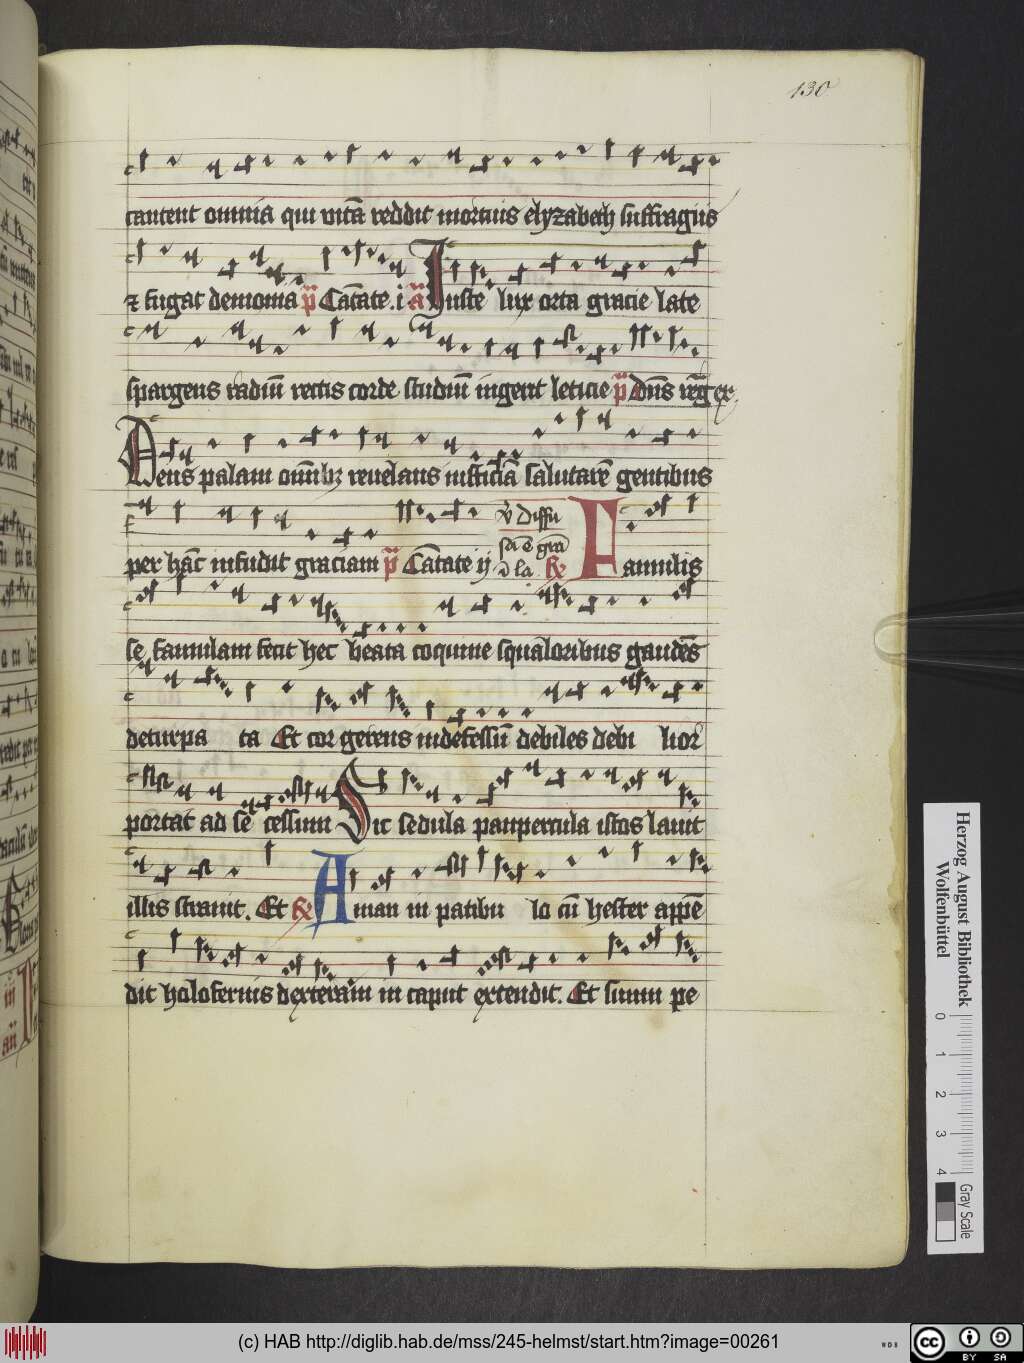 130
cantent omnia qui vitā reddit mortuis elyzabeth suffragiis
⁊ fugat demonia p̄ Cātate .i. ā Iuste lux orta gracie late
spargens radiū rectis corde studiū ingerit leticie p̄ Dn̄s reg̅ ex
Deus palam om̄ibꝫ revelans iustitiā salutarē gentibus
per hāc infudit graciam p̄ Cātate ij Famulis
v̄ Diffu
sa ē gra
i la. ꝶ
se famulam fecit hec beata coquine squaloribus gaudēs
deturpa ta Et cor gerens indefessū debiles debi lior
portat ad se cessum Sic sedula paupercula istos lauit
illis strauit. Et ꝶ Aman in patibu lo cū hester appē
dit holofernis dexteram in caput extendit. Et sum pe
Herzog August Bibliothek
Wolfenbüttel
0 1 2 3 4
Gray Scale
(c) HAB http://diglib.hab.de/mss/245-helmst/start.htm?image=00261
WDB
cc BY SA